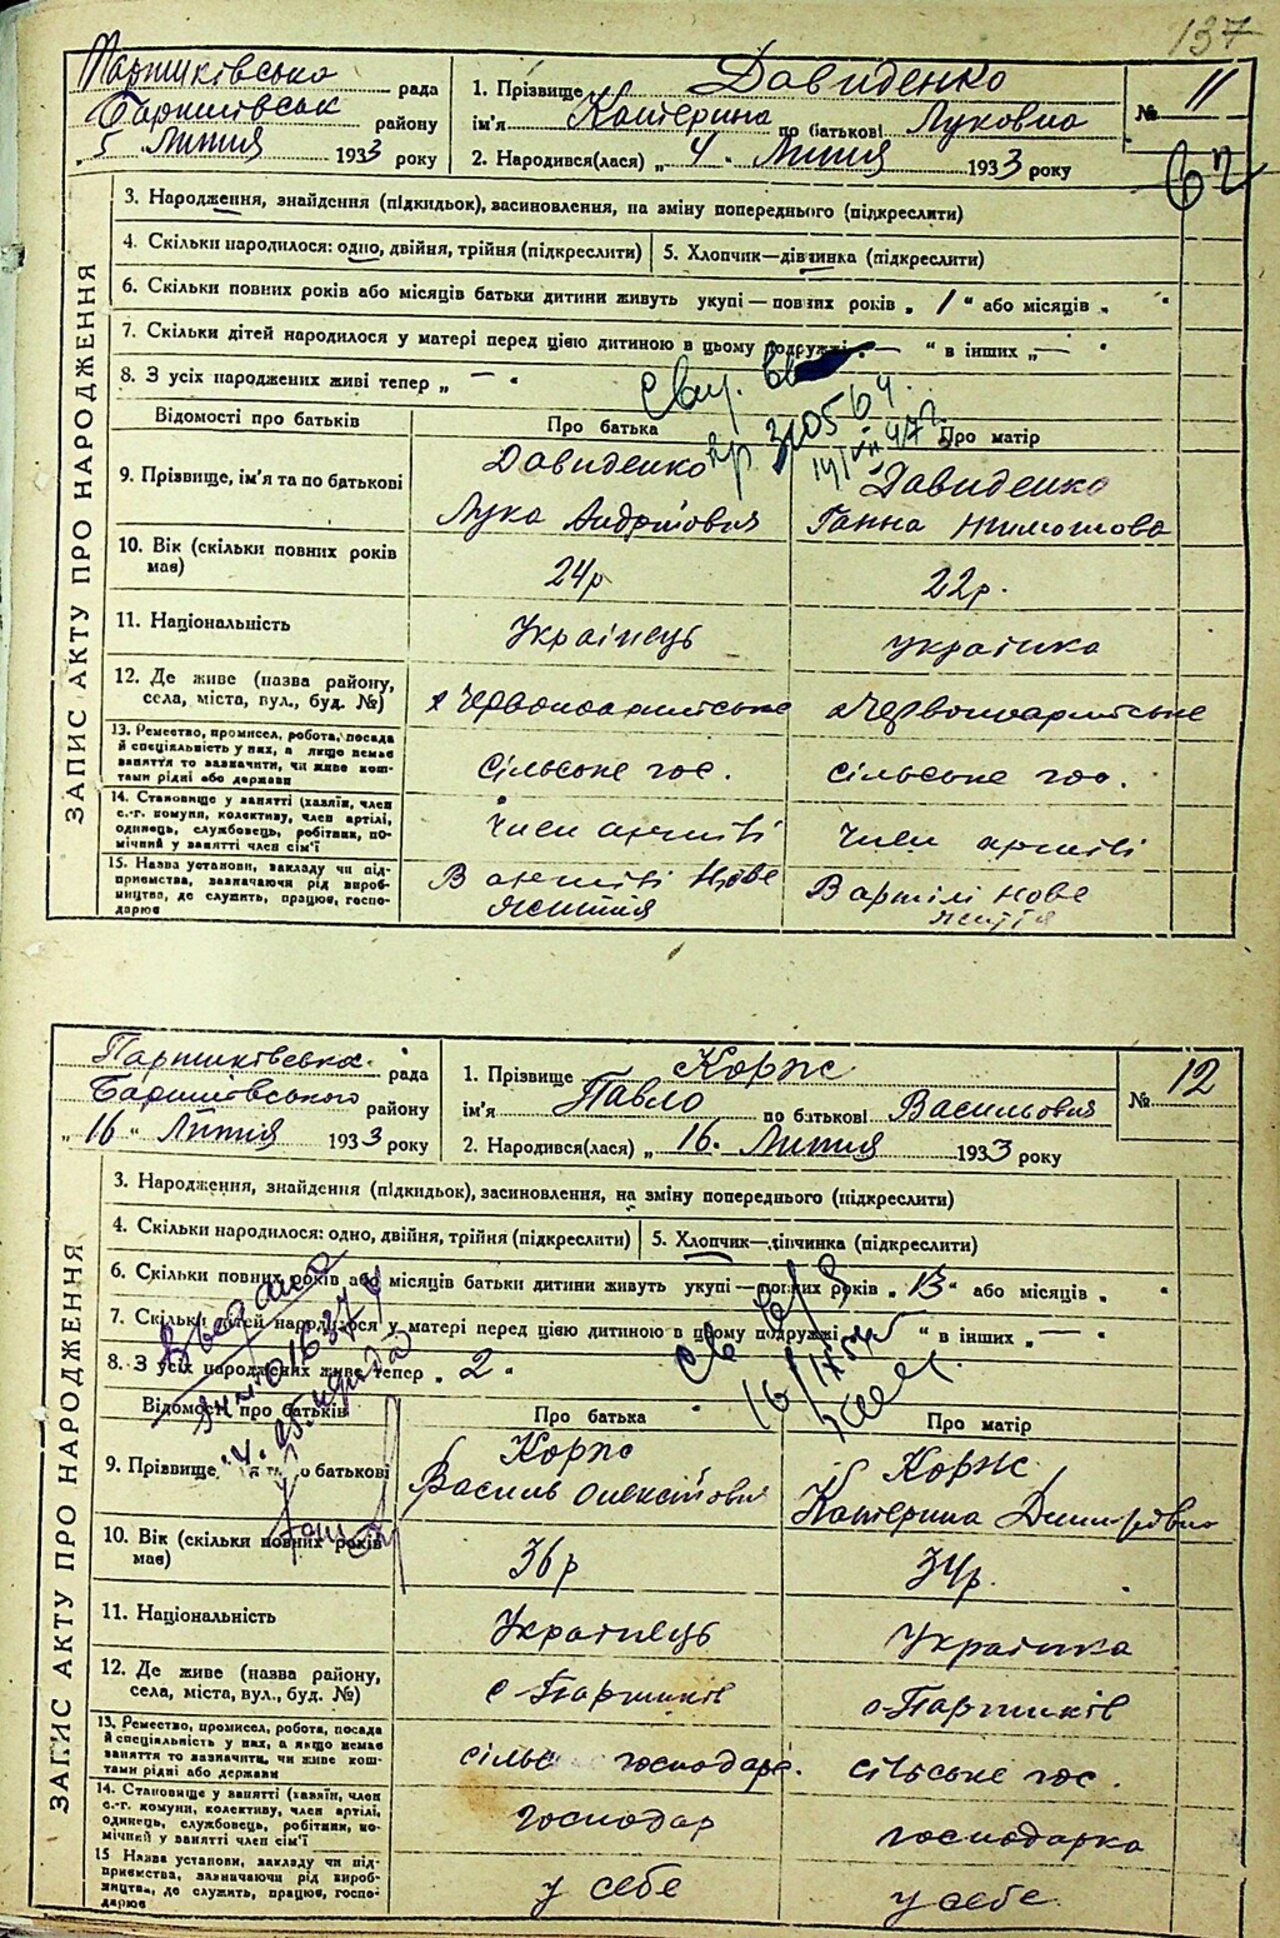 137
Паришківська рада
Баришівськ району
5 Липня 1933 року
1. Прізвище Давиденко
ім'я Катерина по батькові Луковна
2. Народився(лася) „ 4 " Липня 1933 року
№ 11
ЗАПИС АКТУ ПРО НАРОДЖЕННЯ
3. Народження, знайдення (підкидьок), засиновлення, на зміну попереднього (підкреслити)
4. Скільки народилося: одно, двійня, трійня (підкреслити) 5. Хлопчик—дівчинка (підкреслити)
6. Скільки повних років або місяців батьки дитини живуть укупі — повних років „ 1 " або місяців „ "
7. Скільки дітей народилося у матері перед цією дитиною в цьому подружжі „ — " в інших „ — "
8. З усіх народжених живі тепер „ — "
Відомості про батьків Про батька Про матір
9. Прізвище, ім'я та по батькові Давиденко Давиденко
Лука Андрійович Ганна Тимошова
10. Вік (скільки повних років має) 24р 22р.
11. Національність Українець українка
12. Де живе (назва району,
села, міста, вул., буд. №) х Червоноармійське х Червоноармійське
13. Ремество, промисел, робота, посада
й спеціальність у них, а якщо немає
заняття то зазначити, чи живе кош-
тами рідні або держави сільське гос. сільське гос.
14. Становище у занятті (хазяїн, член
с.-г. комуни, колективу, член артілі,
одинець, службовець, робітник, по-
мічний у занятті член сім'ї член артілі член артілі
15. Назва установи, закладу чи під-
приємства, зазначаючи рід вироб-
ництва, де служить, працює, госпо-
дарює В артілі Нове життя В артілі Нове життя
Паришківська рада
Баришівського району
„ 16 " Липня 1933 року
1. Прізвище Корж
ім'я Павло по батькові Васильович
2. Народився(лася) „ 16. Липня 1933 року
№ 12
ЗАПИС АКТУ ПРО НАРОДЖЕННЯ
3. Народження, знайдення (підкидьок), засиновлення, на зміну попереднього (підкреслити)
4. Скільки народилося: одно, двійня, трійня (підкреслити) 5. Хлопчик—дівчинка (підкреслити)
6. Скільки повних років або місяців батьки дитини живуть укупі — повних років „ 13 " або місяців „ "
7. Скільки дітей народилося у матері перед цією дитиною в цьому подружжі " в інших „ — "
8. З усіх народжених живе тепер „ 2 "
Відомості про батьків Про батька Про матір
9. Прізвище, ім'я та по батькові Корж Корж
Василь Олексійович Катерина Дмитрівна
10. Вік (скільки повних років має) 36р 34р.
11. Національність Українець Українка
12. Де живе (назва району,
села, міста, вул., буд. №) с Паришків с Паришків
13. Ремество, промисел, робота, посада
й спеціальність у них, а якщо немає
заняття то зазначити, чи живе кош-
тами рідні або держави сільс господарс. сільське гос.
14. Становище у занятті (хазяїн, член
с.-г. комуни, колективу, член артілі,
одинець, службовець, робітник, по-
мічний у занятті член сім'ї господар господарка
15 Назва установи, закладу чи під-
приємства, зазначаючи рід вироб-
ництва, де служить, працює, госпо-
дарює у себе у себе